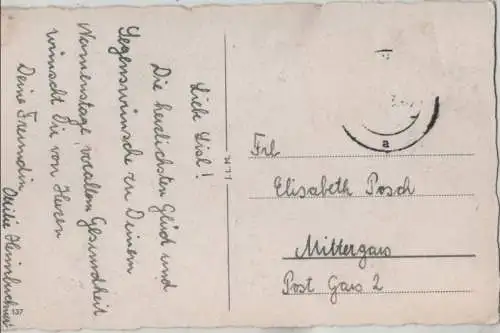 Liebe Lisl!
Die herzlichsten Glück und
Segenswünsche zu Deinem
Namenstage, vorallem Gesundheit
wünscht Die von Herzen
Deine Freundin
Heimbuchner
Frl
Elisabeth Posch
Mittergars
Post Gars 2
137
a